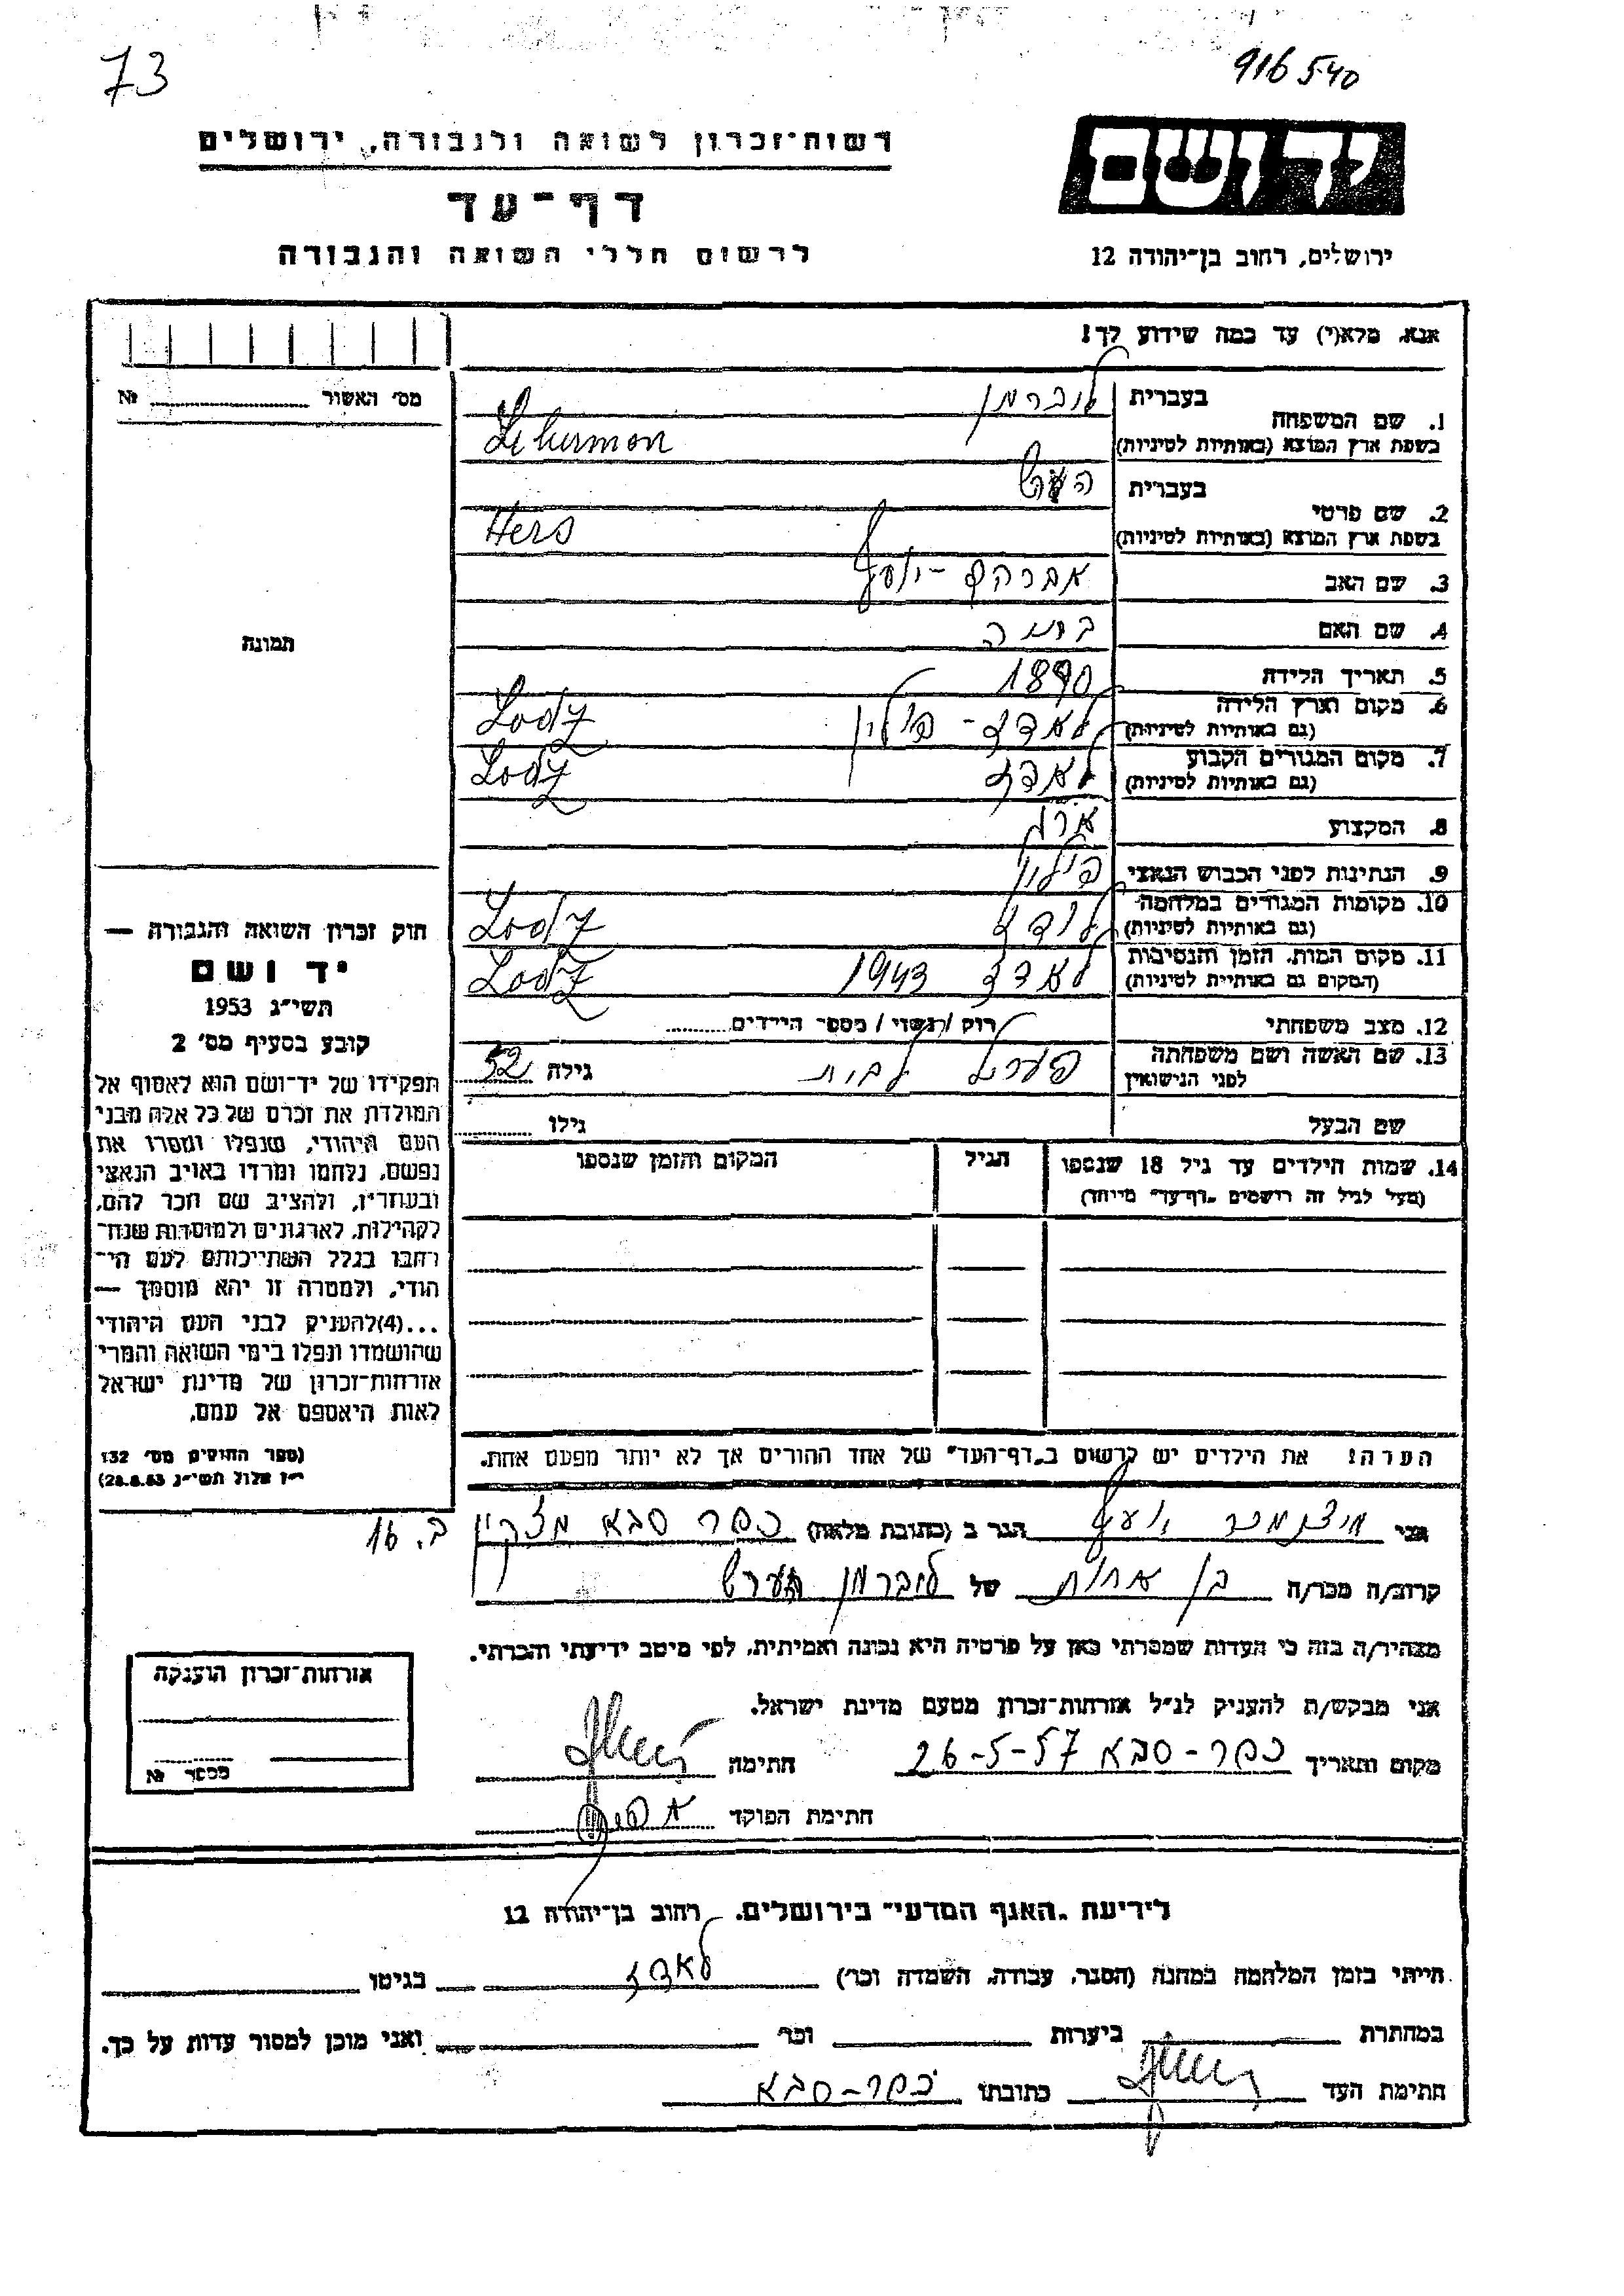 73
916540
יד ושם
רשות־זכרון לשואה ולגבורה, ירושלים
דף־עד
לרשום חללי השואה והגבורה
ירושלים, רחוב בן־יהודה 12
אנא, מלא(י) עד כמה שידוע לך!
מס׳ האשור № 
1. שם המשפחה
בעברית לוברמן
בשפת ארץ המוצא (באותיות לטיניות) Liberman
2. שם פרטי
בעברית הערש
בשפת ארץ המוצא (באותיות לטיניות) Hers
3. שם האב אברהם -יוסף
4. שם האם
5. תאריך הלידה 1890
6. מקום וארץ הלידה (גם באותיות לטיניות) לאדז - פולין Lodz
7. מקום המגורים הקבוע (גם באותיות לטיניות) לאדז Lodz
8. המקצוע אורג
9. הנתינות לפני הכבוש הנאצי פולין
10. מקומות המגורים במלחמה (גם באותיות לטיניות) לודז Lodz
11. מקום המות, הזמן והנסיבות (המקום גם באותיות לטיניות) לאדז 1943 Lodz
12. מצב משפחתי רווק / נשוי / מספר הילדים
13. שם האשה ושם משפחתה לפני הנישואין פערל גילה 52
שם הבעל גילו
14. שמות הילדים עד גיל 18 שנספו
(מעל לגיל זה רושמים „דף־עד״ מייוחד)
הגיל
המקום והזמן שנספו
תמונה
חוק זכרון השואה והגבורה —
יד ושם
תשי״ג 1953
קובע בסעיף מס׳ 2
תפקידו של יד־ושם הוא לאסוף אל
המולדת את זכרם של כל אלה מבני
העם היהודי, שנפלו ומסרו את
נפשם, נלחמו ומרדו באויב הנאצי
ובעוזריו, ולהציב שם וזכר להם,
לקהילות, לארגונים ולמוסדות שנח־
רבו בגלל השתייכותם לעם הי־
הודי, ולמטרה זו יהא מוסמך —
...(4)להעניק לבני העם היהודי
שהושמדו ונפלו בימי השואה והמרי
אזרחות־זכרון של מדינת ישראל
לאות היאספם אל עמם.
(ספר החוקים מס׳ 132
י״ז אלול תשי״ג 28.8.53)
הערה: את הילדים יש לרשום ב„דף־העד״ של אחד ההורים אך לא יותר מפעם אחת.
אני יוסף הגר ב (כתובת מלאה) כפר סבא ב. 16
קרוב/ה מכר/ה בן אחות של לוברמן הערש
מצהיר/ה בזה כי העדות שמסרתי כאן על פרטיה היא נכונה ואמיתית, לפי מיטב ידיעתי והכרתי.
אני מבקש/ת להעניק לנ״ל אזרחות־זכרון מטעם מדינת ישראל.
מקום ותאריך כפר-סבא 26-5-57 חתימה
חתימת הפוקד
אזרחות־זכרון הוענקה
מספר №
לידיעת „האגף המדעי״ בירושלים, רחוב בן־יהודה 12
הייתי בזמן המלחמה במחנה (הסגר, עבודה, השמדה וכו׳) לאדז בגיטו
במחתרת ביערות וכו׳ ואני מוכן למסור עדות על כך.
חתימת העד כתובתו כפר-סבא